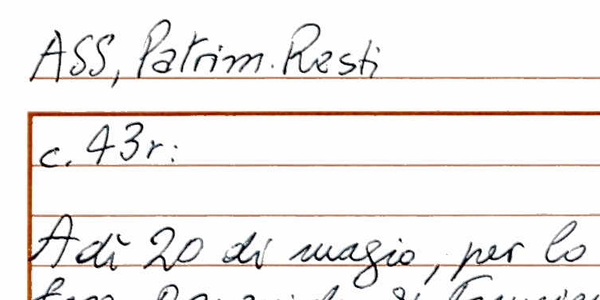 ASS, Patrim. Resti
c. 43r:
Adì 20 di magio, per lo